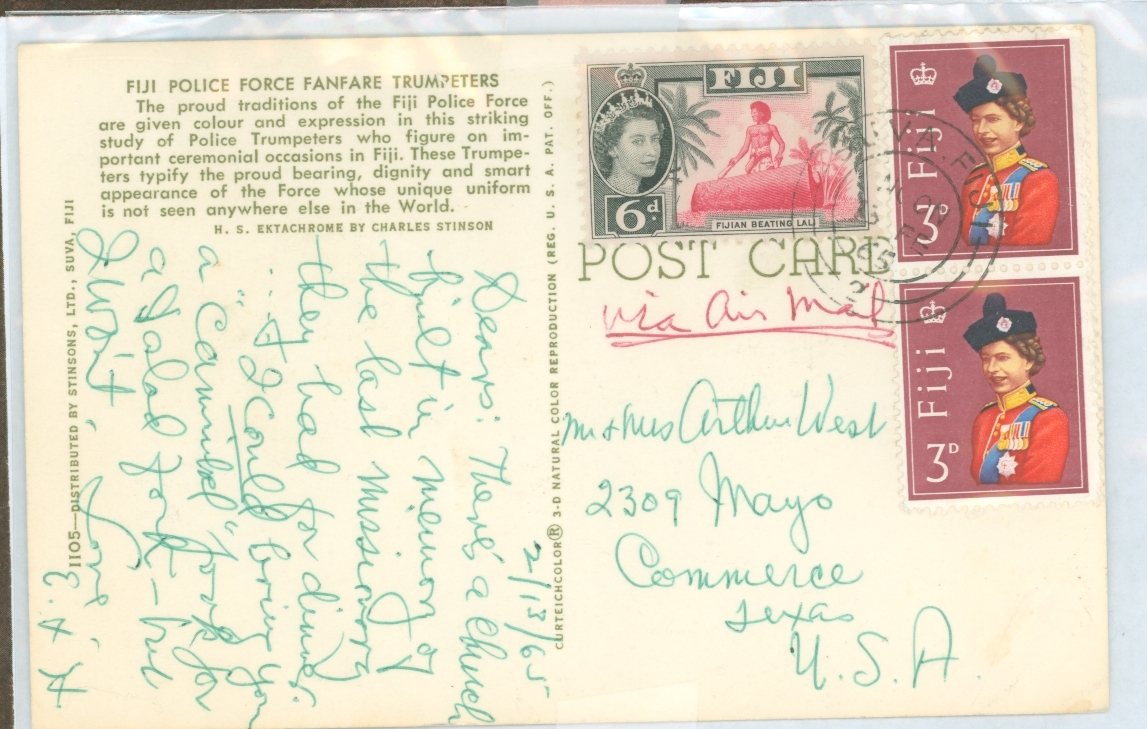 FIJI POLICE FORCE FANFARE TRUMPETERS
The proud traditions of the Fiji Police Force
are given colour and expression in this striking
study of Police Trumpeters who figure on im-
portant ceremonial occasions in Fiji. These Trumpe-
ters typify the proud bearing, dignity and smart
appearance of the Force whose unique uniform
is not seen anywhere else in the World.
H. S. EKTACHROME BY CHARLES STINSON
1105—DISTRIBUTED BY STINSONS, LTD., SUVA, FIJI
2/13/65
Dears: There's a Church
built in memory of
the last missionary
they had for dinner.
I Could bring you
a "Cannibal" fork for
a salad fork - but
I won't.
Love,
E. H
CURTEICHCOLOR® 3-D NATURAL COLOR REPRODUCTION (REG. U. S. A. PAT. OFF.)
FIJI
6d.
FIJIAN BEATING LALI
Fiji
3D
Fiji
3D
SUVA. FIJI
POST CARD
via Air Mail
Mr & Mrs Arthur West
2309 Mayo
Commerce
Texas
U.S.A.